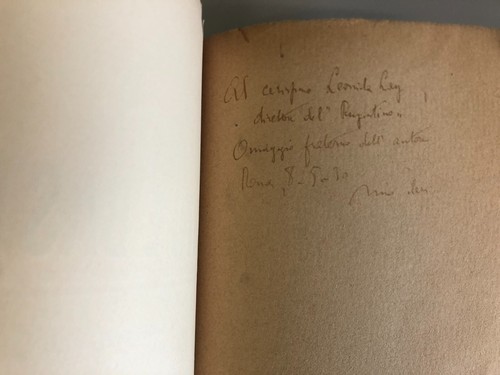 Al carissimo Leonida
direttore del "Rugantino"
Omaggio fraterno dell'autore
Roma 8-5-30